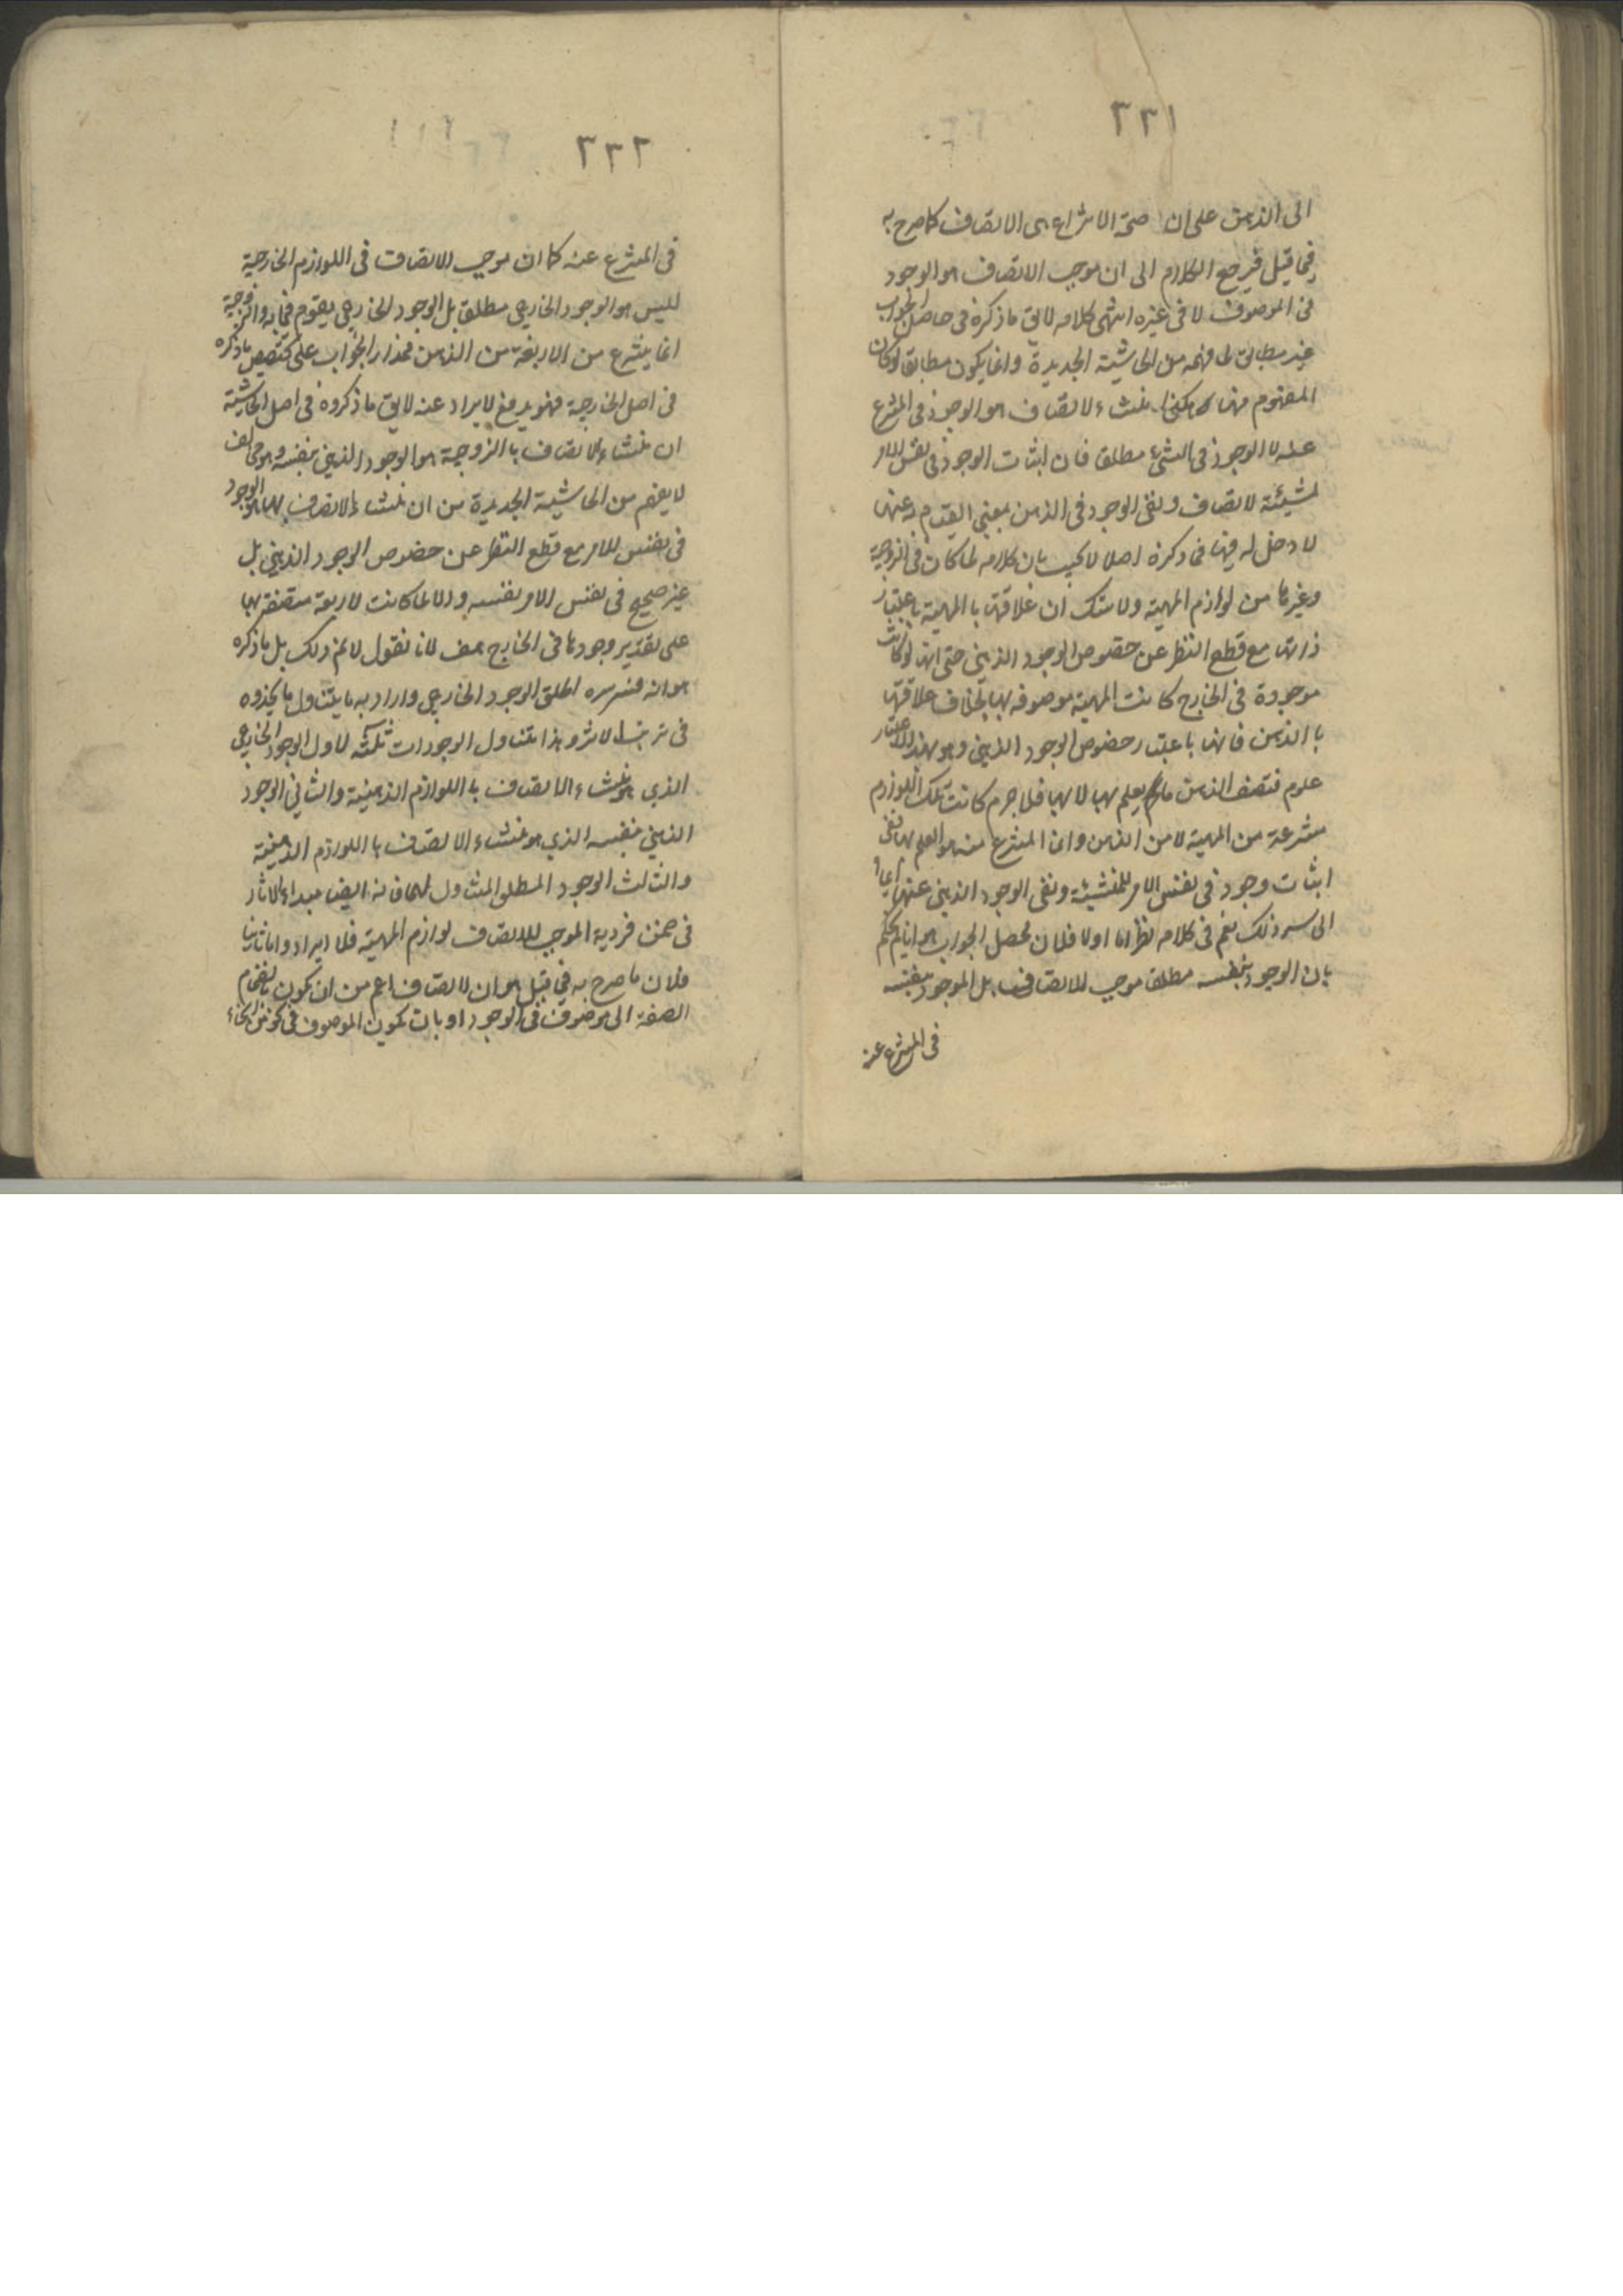 ٢٢١
الى الذهن على ان صحة الانتزاع هى الاتصاف كما صرح به
فيما قيل فيرجع الكلام الى ان موجب الاتصاف هو الوجود
فى الموصوف لا فى غيره انتهى كلامه لا يق ما ذكره فى حاصل الجواب
غير مطابق لما فهمه من الحاشية الجديدة وانما يكون مطابقا لو كان
المفهوم منها هكذا منشاء لاتصاف هو الوجود فى المنتزع
عنه لا الوجود فى الشئ مطلقا فان اثبات الوجود فى نفس الامر
لمنشيئة لاتصاف ونفى الوجود فى الذهن بمعنى القيام به عنها
لا دخل له فيها فى ذكره اصلا لا يجيب بان كلامه لما كان فى الزوجية
وغيرها من لوازم المهية ولا شك ان علاقتها با المهية باعتبار
ذاتها مع قطع النظر عن خصوص الوجود الذهنى حتى انها لو كانت
موجودة فى الخارج كانت المهية موصوفه بها بخلاف علاقتها
با الذهن فانها باعتبار خصوص الوجود الذهنى وهو بهذا الاعتبار
علوم فتصف الذهن ما يعلم بها لا بها فلا جرم كانت تلك اللوازم
منتزعة من المهية لا من الذهن وانما المنتزع منه هو العلم بها ففى
اثبات وجود فى نفس الامر للمنشيئة ونفى الوجود الذهنى عنها ايماء
الى سر ذلك نعم فى كلامه نظر اما اولا فلان محصل الجواب هو انا لم نحكم
بان الوجود بنفسه مطلقا موجب للاتصاف بل الموجود بنفسه
فى المنتزع عنه
٢٢٢
فى المنتزع عنه كما ان موجب الاتصاف فى اللوازم الخارجية
ليس هو الوجود الخارجى مطلقا بل الوجود الخارجى يقوم فيما به والزوجية
انما ينتزع من الاربعة من الذهن فمدار الجواب على تخصيص ما ذكره
فى اصل الخارجية فهو يدفع لايراد عنه لا يق ما ذكروه فى اصل الحاشية
ان منشاء الاتصاف با الزوجية هو الوجود الذهنى بنفسه وهو مخالف
لا يفهم من الحاشية الجديدة من ان منشاء الاتصاف بها هو الوجود
فى نفس للامر مع قطع النظر عن خصوص الوجود الذهنى بل
غير صحيح فى نفس الامر بنفسه والا لما كانت لاربعة متصفة بها
على تقدير وجودها فى الخارج هف لانا نقول لا نم ذلك بل ما ذكره
هو انه قدس سره اطلق الوجود الخارجى واراد به ما يتناول ما يحذوه
فى ترتب لاثر وهذا متناول الوجودات ثلثه لاول الوجود الخارجى
الذى هو منشاء الاتصاف با اللوازم الذهنية والثانى الوجود
الذهنى بنفسه الذى هو منشاء الاتصاف با اللوازم الذهنية
والثالث الوجود المطلق المتناول لهما فانه ايضا مبداء لاثار
فى ضمن فردية الموجب للاتصاف لوازم المهية فلا ايراد واما ثانيا
فلان ما صرح به فى قيل هو ان لاتصاف اعم من ان يكون بانضمام
الصفة الى موصوف فى الوجود او بان تكون الموصوف فى نحو من انحاء